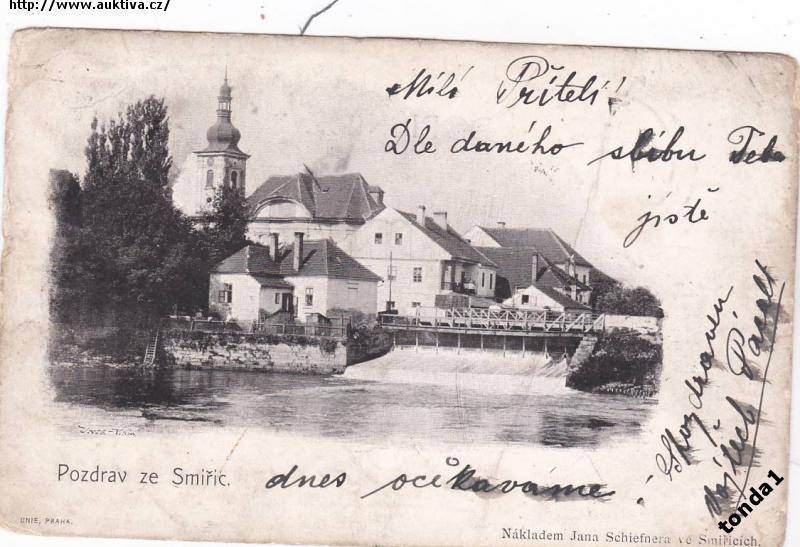 http://www.auktiva.cz/
Milí Příteli!
Dle daného slibu Tebe
jistě
dnes očekáváme!
S pozdravem
Vojtěch
Pozdrav ze Smiřic.
UNIE, PRAHA.
Nákladem Jana Schiefnera ve Smiřicích.
tonda1